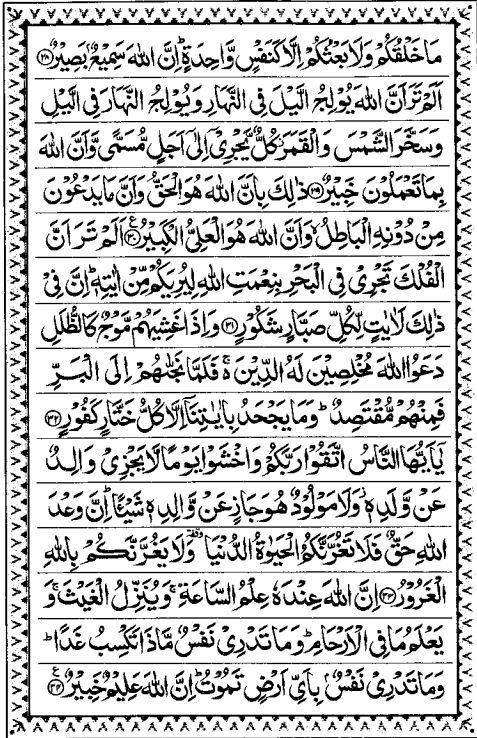 مَا خَلْقُكُمْ وَلَا بَعْثُكُمْ اِلَّا كَنَفْسٍ وَّاحِدَةٍ ؕ اِنَّ اللّٰهَ سَمِيْعٌۢ بَصِيْرٌ ﴿۲۸﴾
اَلَمْ تَرَ اَنَّ اللّٰهَ يُوْلِجُ الَّيْلَ فِى النَّهَارِ وَيُوْلِجُ النَّهَارَ فِى الَّيْلِ
وَسَخَّرَ الشَّمْسَ وَالْقَمَرَ ؗ كُلٌّ يَّجْرِىْۤ اِلٰٓى اَجَلٍ مُّسَمًّى وَّاَنَّ اللّٰهَ
بِمَا تَعْمَلُوْنَ خَبِيْرٌ ﴿۲۹﴾ ذٰلِكَ بِاَنَّ اللّٰهَ هُوَ الْحَقُّ وَاَنَّ مَا يَدْعُوْنَ
مِنْ دُوْنِهِ الْبَاطِلُ ۙ وَاَنَّ اللّٰهَ هُوَ الْعَلِىُّ الْكَبِيْرُ ﴿۳۰﴾ اَلَمْ تَرَ اَنَّ
الْفُلْكَ تَجْرِىْ فِى الْبَحْرِ بِنِعْمَتِ اللّٰهِ لِيُرِيَكُمْ مِّنْ اٰيٰتِهٖ ؕ اِنَّ فِىْ
ذٰلِكَ لَاٰيٰتٍ لِّكُلِّ صَبَّارٍ شَكُوْرٍ ﴿۳۱﴾ وَاِذَا غَشِيَهُمْ مَّوْجٌ كَالظُّلَلِ
دَعَوُا اللّٰهَ مُخْلِصِيْنَ لَهُ الدِّيْنَ ۚ فَلَمَّا نَجّٰٮهُمْ اِلَى الْبَرِّ
فَمِنْهُمْ مُّقْتَصِدٌ ؕ وَمَا يَجْحَدُ بِاٰيٰتِنَاۤ اِلَّا كُلُّ خَتَّارٍ كَفُوْرٍ ﴿۳۲﴾
يٰۤاَيُّهَا النَّاسُ اتَّقُوْا رَبَّكُمْ وَاخْشَوْا يَوْمًا لَّا يَجْزِىْ وَالِدٌ
عَنْ وَّلَدِهٖ ؗ وَلَا مَوْلُوْدٌ هُوَ جَازٍ عَنْ وَّالِدِهٖ شَيْـًٔا ؕ اِنَّ وَعْدَ
اللّٰهِ حَقٌّ فَلَا تَغُرَّنَّكُمُ الْحَيٰوةُ الدُّنْيَا ۥ وَلَا يَغُرَّنَّكُمْ بِاللّٰهِ
الْغَرُوْرُ ﴿۳۳﴾ اِنَّ اللّٰهَ عِنْدَهٗ عِلْمُ السَّاعَةِ ۚ وَيُنَزِّلُ الْغَيْثَ ۚ وَ
يَعْلَمُ مَا فِى الْاَرْحَامِ ؕ وَمَا تَدْرِىْ نَفْسٌ مَّاذَا تَكْسِبُ غَدًا ؕ
وَمَا تَدْرِىْ نَفْسٌۢ بِاَىِّ اَرْضٍ تَمُوْتُ ؕ اِنَّ اللّٰهَ عَلِيْمٌ خَبِيْرٌ ﴿۳۴﴾